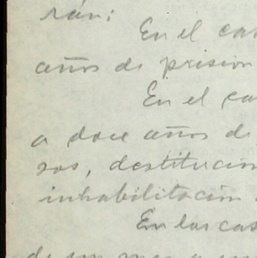 rán:
En el cas
años de prision
En el ca
a doce años de
sos, destitucion
inhabilitacion
En los cas